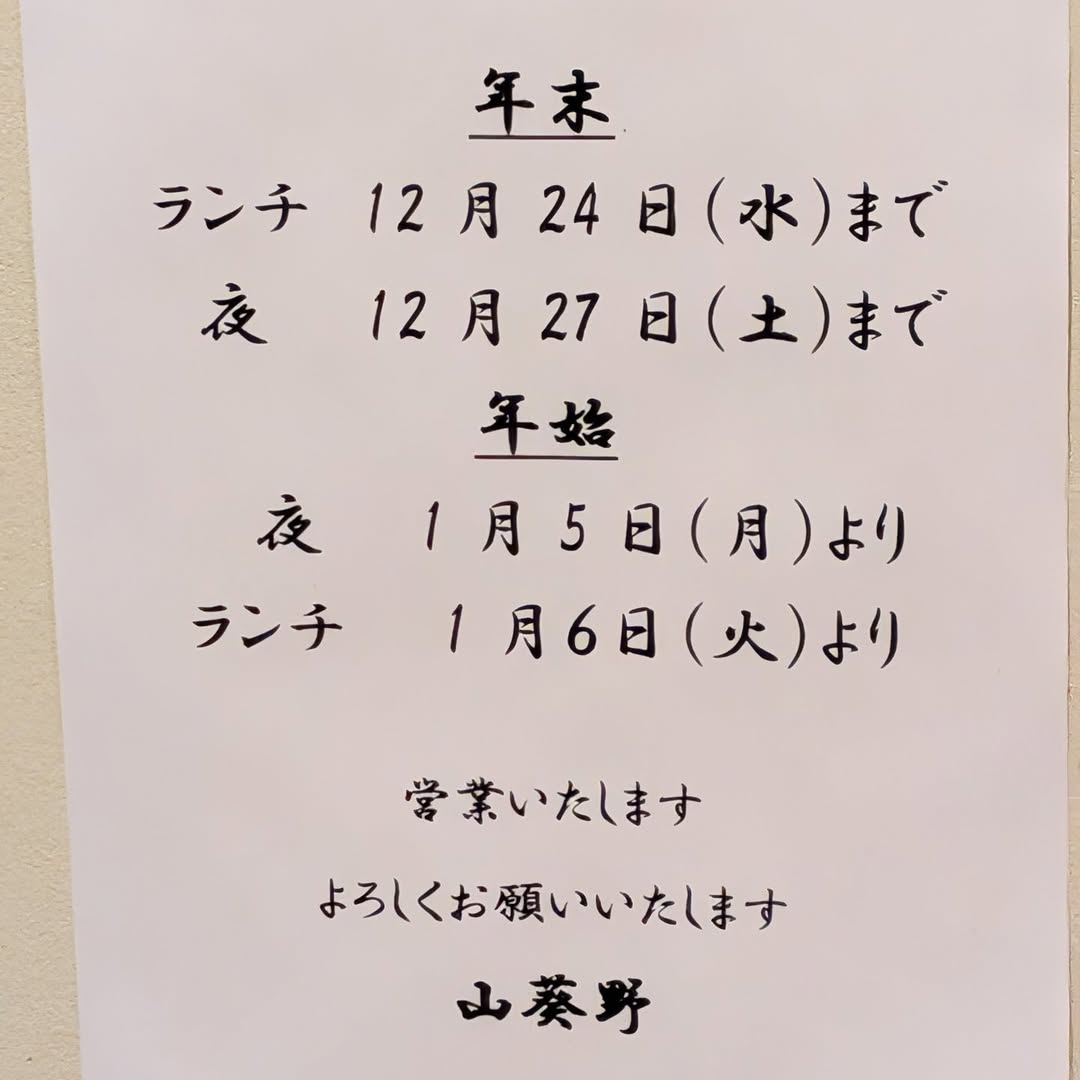 年末
ランチ 12月24日(水)まで
夜 12月27日(土)まで
年始
夜 1月5日(月)より
ランチ 1月6日(火)より
営業いたします
よろしくお願いいたします
山葵野